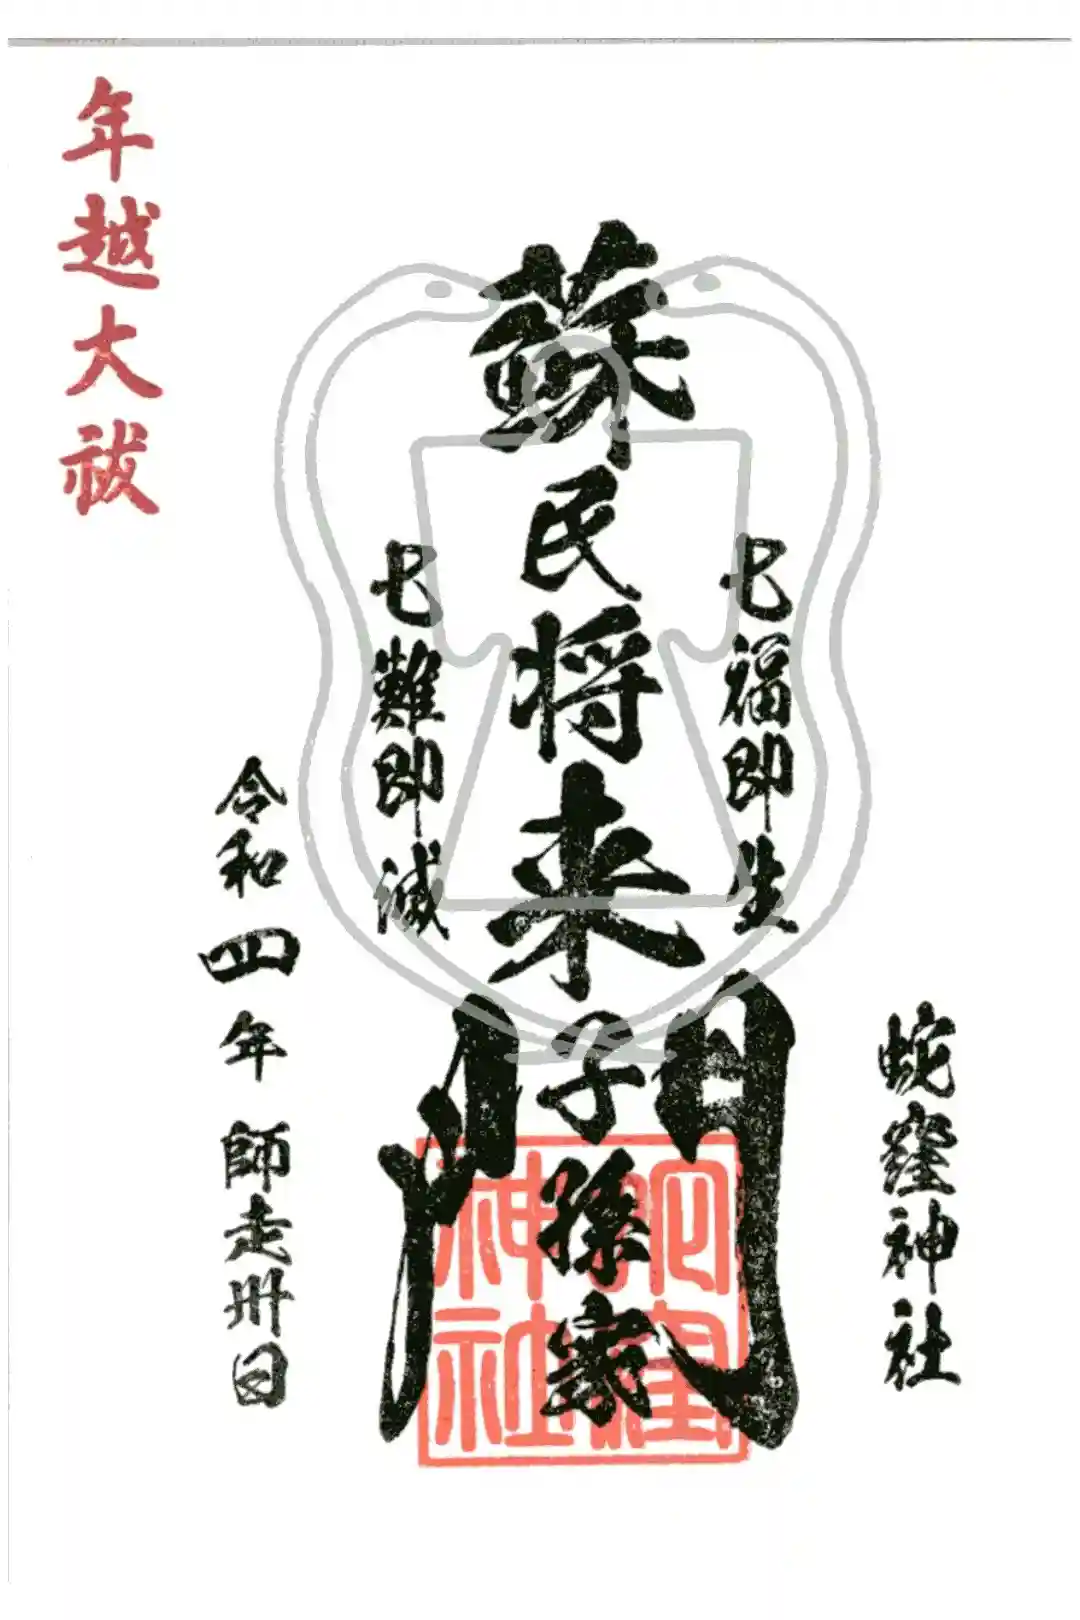 蛇窪神社
七福即生
蘇民将来子孫家門
七難即滅
令和四年師走丗日
年越大祓
蛇窪神社